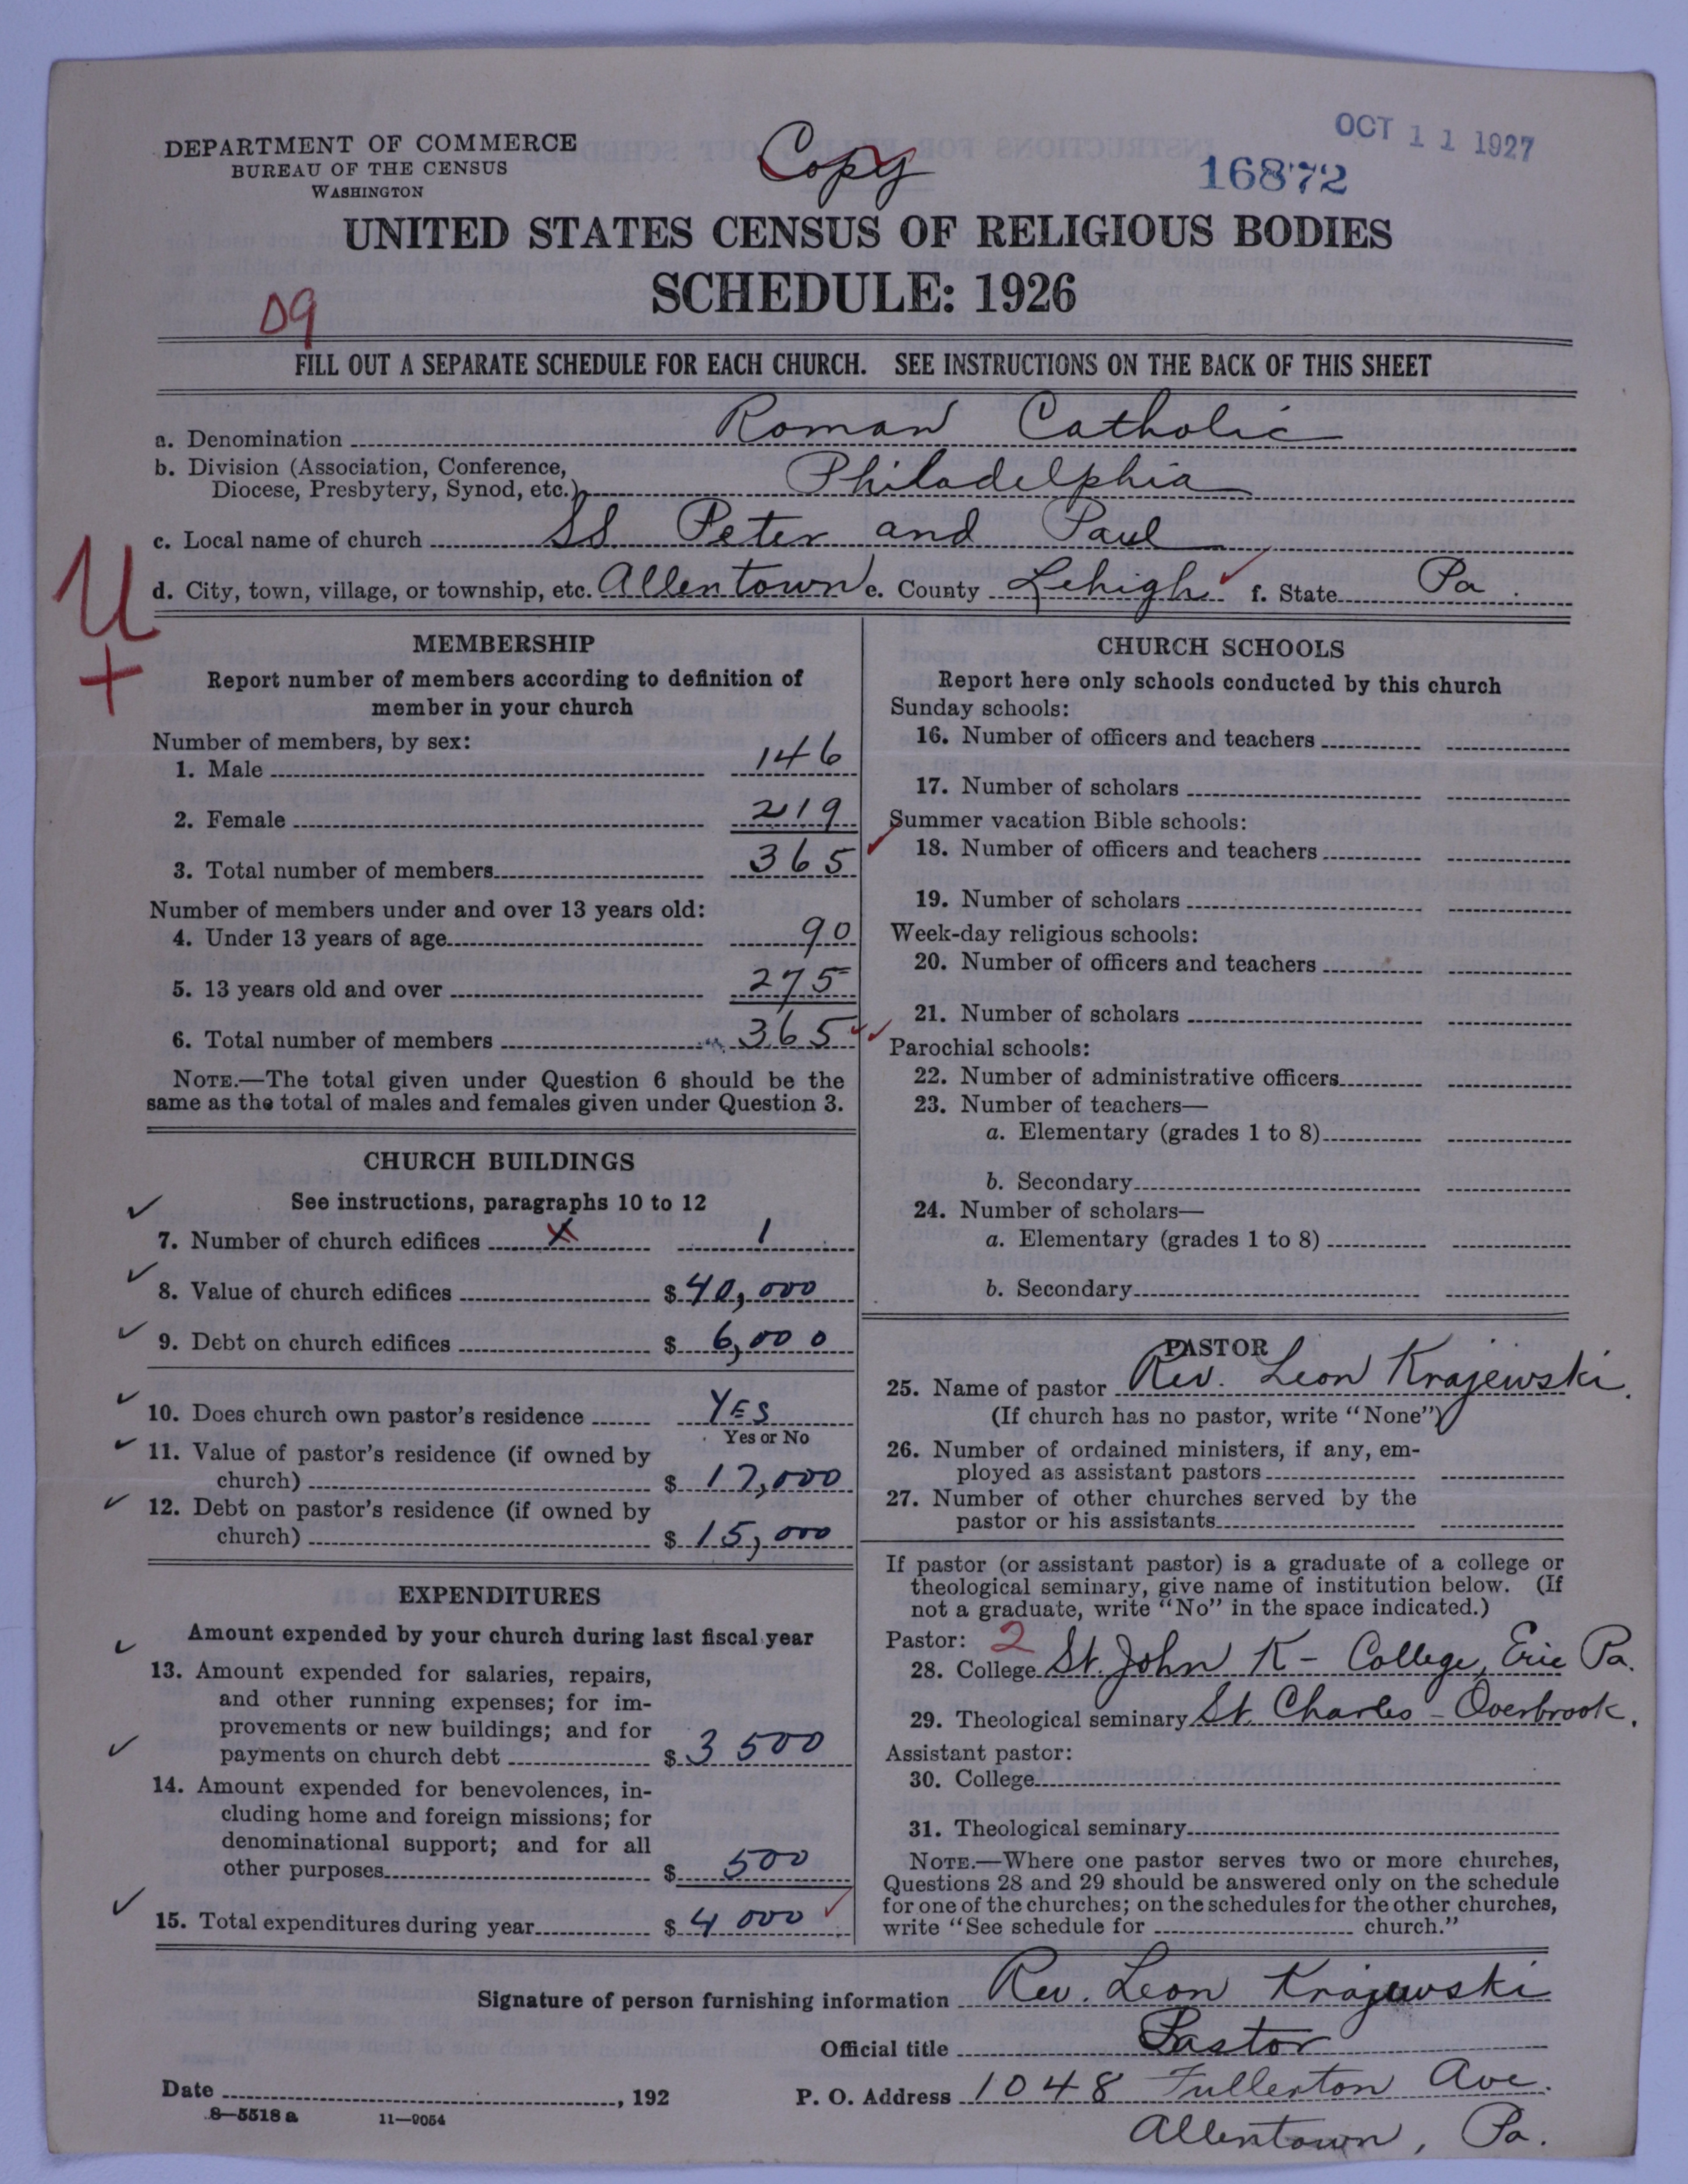 OCT 11 1927
DEPARTMENT OF COMMERCE
BUREAU OF THE CENSUS
WASHINGTON
Copy
16872
UNITED STATES CENSUS OF RELIGIOUS BODIES
SCHEDULE: 1926
09
FILL OUT A SEPARATE SCHEDULE FOR EACH CHURCH. SEE INSTRUCTIONS ON THE BACK OF THIS SHEET
a. Denomination Roman Catholic
b. Division (Association, Conference,
Diocese, Presbytery, Synod, etc.) Philadelphia
c. Local name of church SS Peter and Paul
d. City, town, village, or township, etc. Allentown e. County Lehigh f. State Pa.
U
+
MEMBERSHIP
Report number of members according to definition of
member in your church
Number of members, by sex:
1. Male 146
2. Female 219
3. Total number of members 365
Number of members under and over 13 years old:
4. Under 13 years of age 90
5. 13 years old and over 275
6. Total number of members 365
NOTE.—The total given under Question 6 should be the
same as the total of males and females given under Question 3.
CHURCH BUILDINGS
See instructions, paragraphs 10 to 12
7. Number of church edifices x 1
8. Value of church edifices $ 40,000
9. Debt on church edifices $ 6,000
10. Does church own pastor's residence YES
Yes or No
11. Value of pastor's residence (if owned by
church) $ 17,000
12. Debt on pastor's residence (if owned by
church) $ 15,000
EXPENDITURES
Amount expended by your church during last fiscal year
13. Amount expended for salaries, repairs,
and other running expenses; for im-
provements or new buildings; and for
payments on church debt $ 3 500
14. Amount expended for benevolences, in-
cluding home and foreign missions; for
denominational support; and for all
other purposes $ 500
15. Total expenditures during year $ 4 000
CHURCH SCHOOLS
Report here only schools conducted by this church
Sunday schools:
16. Number of officers and teachers
17. Number of scholars
Summer vacation Bible schools:
18. Number of officers and teachers
19. Number of scholars
Week-day religious schools:
20. Number of officers and teachers
21. Number of scholars
Parochial schools:
22. Number of administrative officers
23. Number of teachers—
a. Elementary (grades 1 to 8)
b. Secondary
24. Number of scholars—
a. Elementary (grades 1 to 8)
b. Secondary
PASTOR
25. Name of pastor Rev. Leon Krajewski.
(If church has no pastor, write "None")
26. Number of ordained ministers, if any, em-
ployed as assistant pastors
27. Number of other churches served by the
pastor or his assistants
If pastor (or assistant pastor) is a graduate of a college or
theological seminary, give name of institution below. (If
not a graduate, write "No" in the space indicated.)
Pastor: 2
28. College St. John K- College, Erie Pa.
29. Theological seminary St. Charles - Overbrook.
Assistant pastor:
30. College
31. Theological seminary
NOTE.—Where one pastor serves two or more churches,
Questions 28 and 29 should be answered only on the schedule
for one of the churches; on the schedules for the other churches,
write "See schedule for church."
Signature of person furnishing information Rev. Leon Krajewski
Official title Pastor
Date , 192 P. O. Address 1048 Fullerton Ave.
8—5518 a 11—9054
Allentown, Pa.